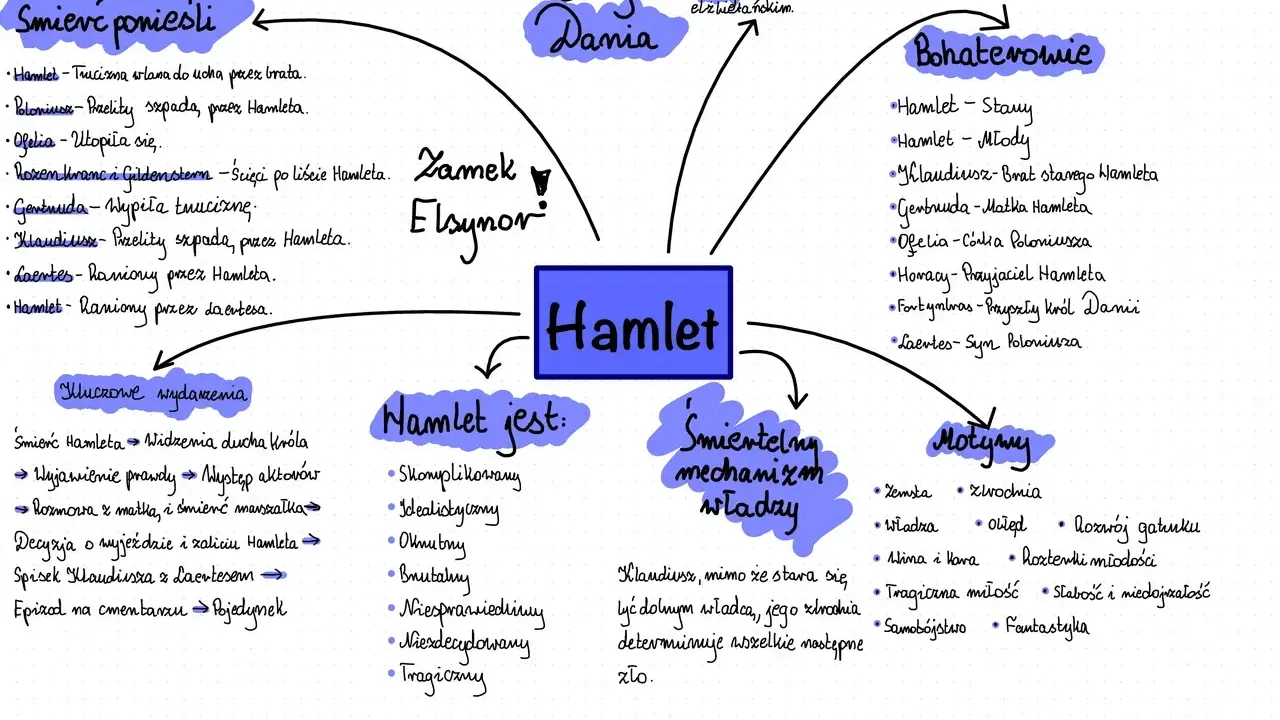 Śmierć ponieśli
• Hamlet - Trucizna wlana do ucha przez brata.
• Poloniusz - Przelity szpadą przez Hamleta.
• Ofelia - Utopiła się.
• Rozenkranc i Gildenstern - Ścięci po liście Hamleta.
• Gertruda - Wypiła truciznę.
• Klaudiusz - Przelity szpadą, przez Hamleta.
• Laertes - Raniony przez Hamleta.
• Hamlet - Raniony przez Laertesa.
Dania
elżbietańskim.
Zamek
Elsynor
Bohaterowie
• Hamlet - Stary
• Hamlet - Młody
• Klaudiusz - Brat starego Hamleta
• Gertruda - Matka Hamleta
• Ofelia - Córka Poloniusza
• Horacy - Przyjaciel Hamleta
• Fortynbras - Przyszły król Danii
• Laertes - Syn Poloniusza
Hamlet
Kluczowe wydarzenia
Śmierć Hamleta → Widzenia ducha króla
→ Wyjawienie prawdy → Występ aktorów
→ Rozmowa z matką, i śmierć marszałka →
Decyzja o wyjeździe i zabiciu Hamleta →
Spisek Klaudiusza z Laertesem →
Epizod na cmentarzu → Pojedynek
Hamlet jest:
• Skomplikowany
• Idealistyczny
• Okrutny
• Brutalny
• Niesprawiedliwy
• Niezdecydowany
• Tragiczny
Śmiertelny
mechanizm
władzy
Klaudiusz, mimo że stara się,
być dobrym władcą, jego zbrodnia
determinuje wszelkie następne
zło.
Motywy
• Zemsta • Zbrodnia
• Władza • Obłęd • Rozwój gatunku
• Wina i Kara • Rozterki młodości
• Tragiczna miłość • Słabość i niedojrzałość
• Samobójstwo • Fantastyka